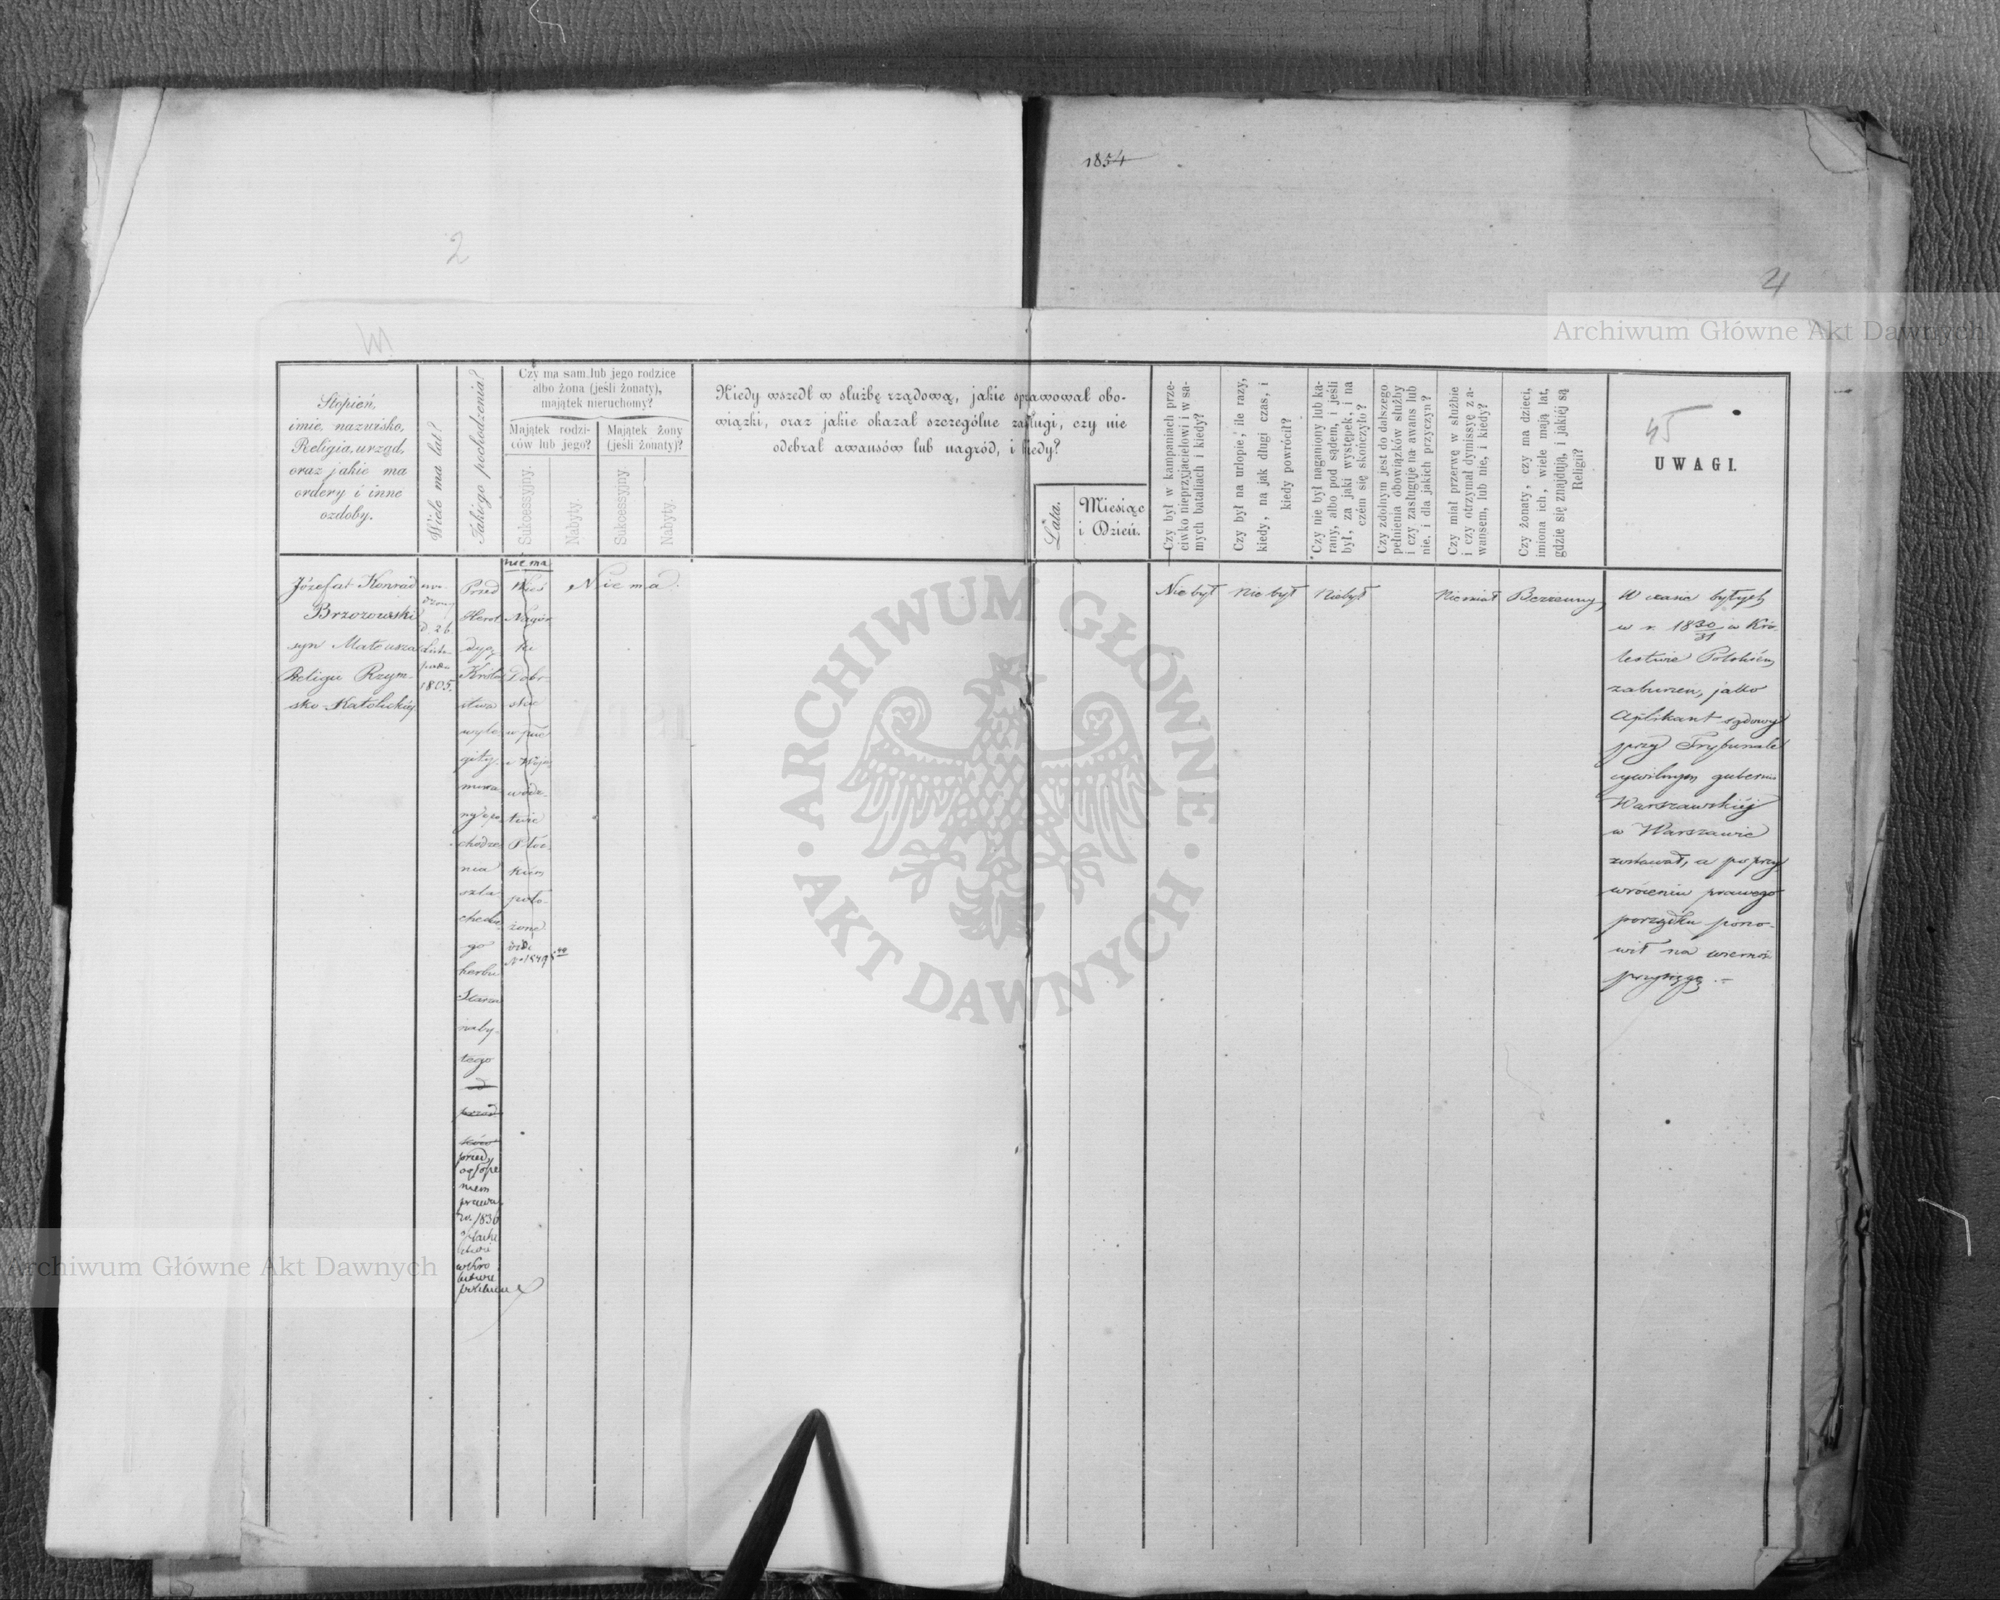 1854
2
4
Archiwum Główne Akt Dawnych
Stopień,
imie, nazwisko,
Religia, urząd,
oraz jakie ma
ordery i inne
ozdoby.
Wiele ma lat?
Jakiego pochodzenia?
Czy ma sam lub jego rodzice
albo żona (jeśli żonaty),
majątek nieruchomy?
Majątek rodzi-
ców lub jego?
Majątek żony
(jeśli żonaty)?
Sukcessyjny.
Nabyty.
Sukcessyjny
Nabyty.
Kiedy wszedł w służbę rządową, jakie sprawował obo-
wiązki, oraz jakie okazał szczególne zasługi, czy nie
odebrał awansów lub nagród, i kiedy?
Lata.
Miesiąc
i Dzień.
Czy był w kampaniach prze-
ciwko nieprzyjacielowi i w sa-
mych bataliach i kiedy?
Czy był na urlopie, ile razy,
kiedy, na jak długi czas, i
kiedy powrócił?
Czy nie był naganiony lub ka-
rany, albo pod sądem, i jeśli
był, za jaki występek, i na
czém się skończyło?
Czy zdolnym jest do dalszego
pełnienia obowiązków służby
i czy zasługuje na awans lub
nie, i dla jakich przyczyn?
Czy miał przerwę w służbie
i czy otrzymał dymissyę z a-
wansem, lub nie, i kiedy?
Czy żonaty, czy ma dzieci,
imiona ich, wiele mają lat,
gdzie się znajdują, i jakiéj są
Religii?
45
UWAGI.
Józefat Konrad
Brzozowski
syn Mateusza
Religii Rzym-
sko-Katolickiéj
uro-
dzony
d. 26
Listo-
pada
1805.
Przed
Herol
dyą
Króle
stwa
wyle-
gity-
mowa
ny z po
chodze
nia
szla-
checkie
go
herbu
naby-
tego
przed
ogłosze
niem
prawa
z r. 1836
o szlache
ctwie
w Kró
lestwie
polskim
nie ma
Wieś
Nagór
ki
Dobr
skie
w
Woje
wódz-
twie
Płoc-
kiem
poło-
żoną
Nie ma.
Nie był
Nie był
Nie był
Nie miał
Bezżenny
W czasie byłych
w r. 1830/31 w Kró-
lestwie Polskiém
zaburzeń, jako
Aplikant sądowy
przy Trybunale
cywilnym gubernii
Warszawskiéj
w Warszawie
zostawał, a po przy
wróceniu prawego
porządku pono-
wił na wierność
przysięgę.
ARCHIWUM GŁÓWNE
AKT DAWNYCH
Archiwum Główne Akt Dawnych